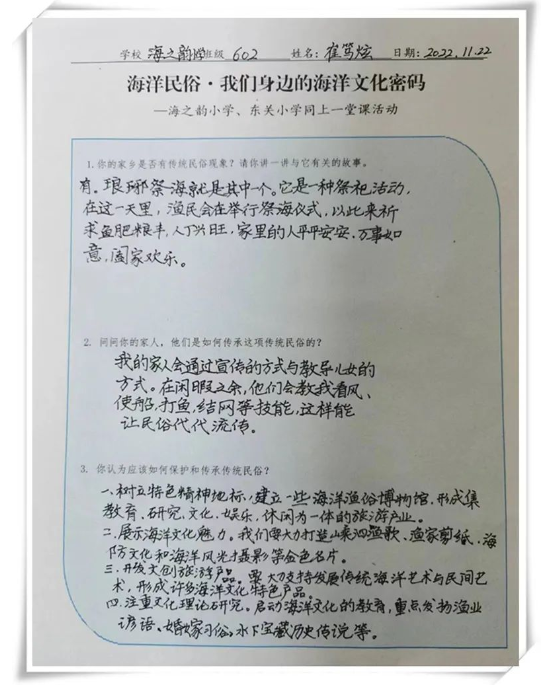 学校 海之韵小 班级 602 姓名：崔笃炫 日期：2022.11.22
海洋民俗·我们身边的海洋文化密码
—海之韵小学、东关小学同上一堂课活动
1.你的家乡是否有传统民俗现象？请你讲一讲与它有关的故事。
有。琅琊祭海就是其中一个。它是一种祭祀活动，
在这一天里，渔民会在举行祭海仪式，以此来祈
求鱼肥粮丰，人丁兴旺，家里的人平平安安、万事如
意，阖家欢乐。
2. 问问你的家人，他们是如何传承这项传统民俗的？
我的家人会通过宣传的方式与教导儿女的
方式。在闲暇之余，他们会教我看风、
使船，打鱼，结网等技能，这样能
让民俗代代流传。
3. 你认为应该如何保护和传承传统民俗？
一、树立特色精神地标，建立一些海洋渔俗博物馆，形成集
教育、研究、文化、娱乐、休闲为一体的旅游产业。
二、展示海洋文化魅力。我们要大力打造山东泗渔歌、渔家剪纸、海
防文化和海洋风光摄影等金色名片。
三、开发文创旅游产品。要大力支持发展传统海洋艺术与民间艺
术，形成许多海洋文化特色产品。
四、注重文化理论研究。启动海洋文化的教育，重点发扬渔业
谚语、婚嫁习俗、水下宝藏历史传说等。